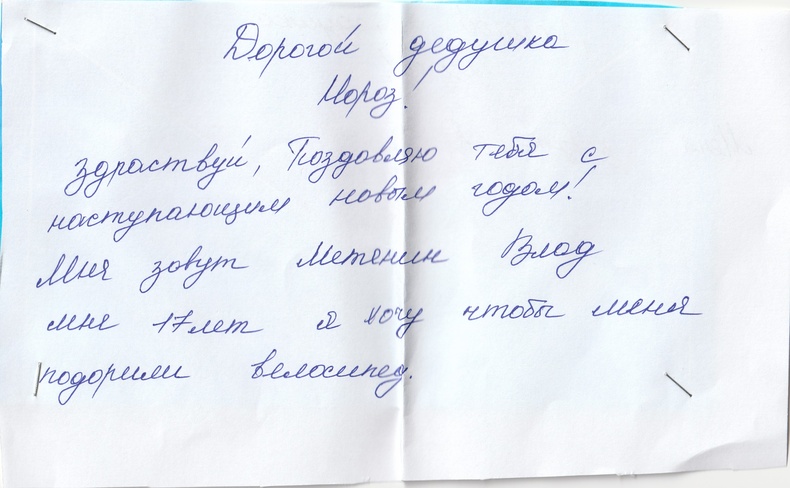 Дорогой дедушка
Мороз!
здраствуй, Поздовляю тебя с
наступающим новым годом!
Меня зовут Метенин Влад
мне 17 лет я хочу чтобы меня
подорили велосипед.